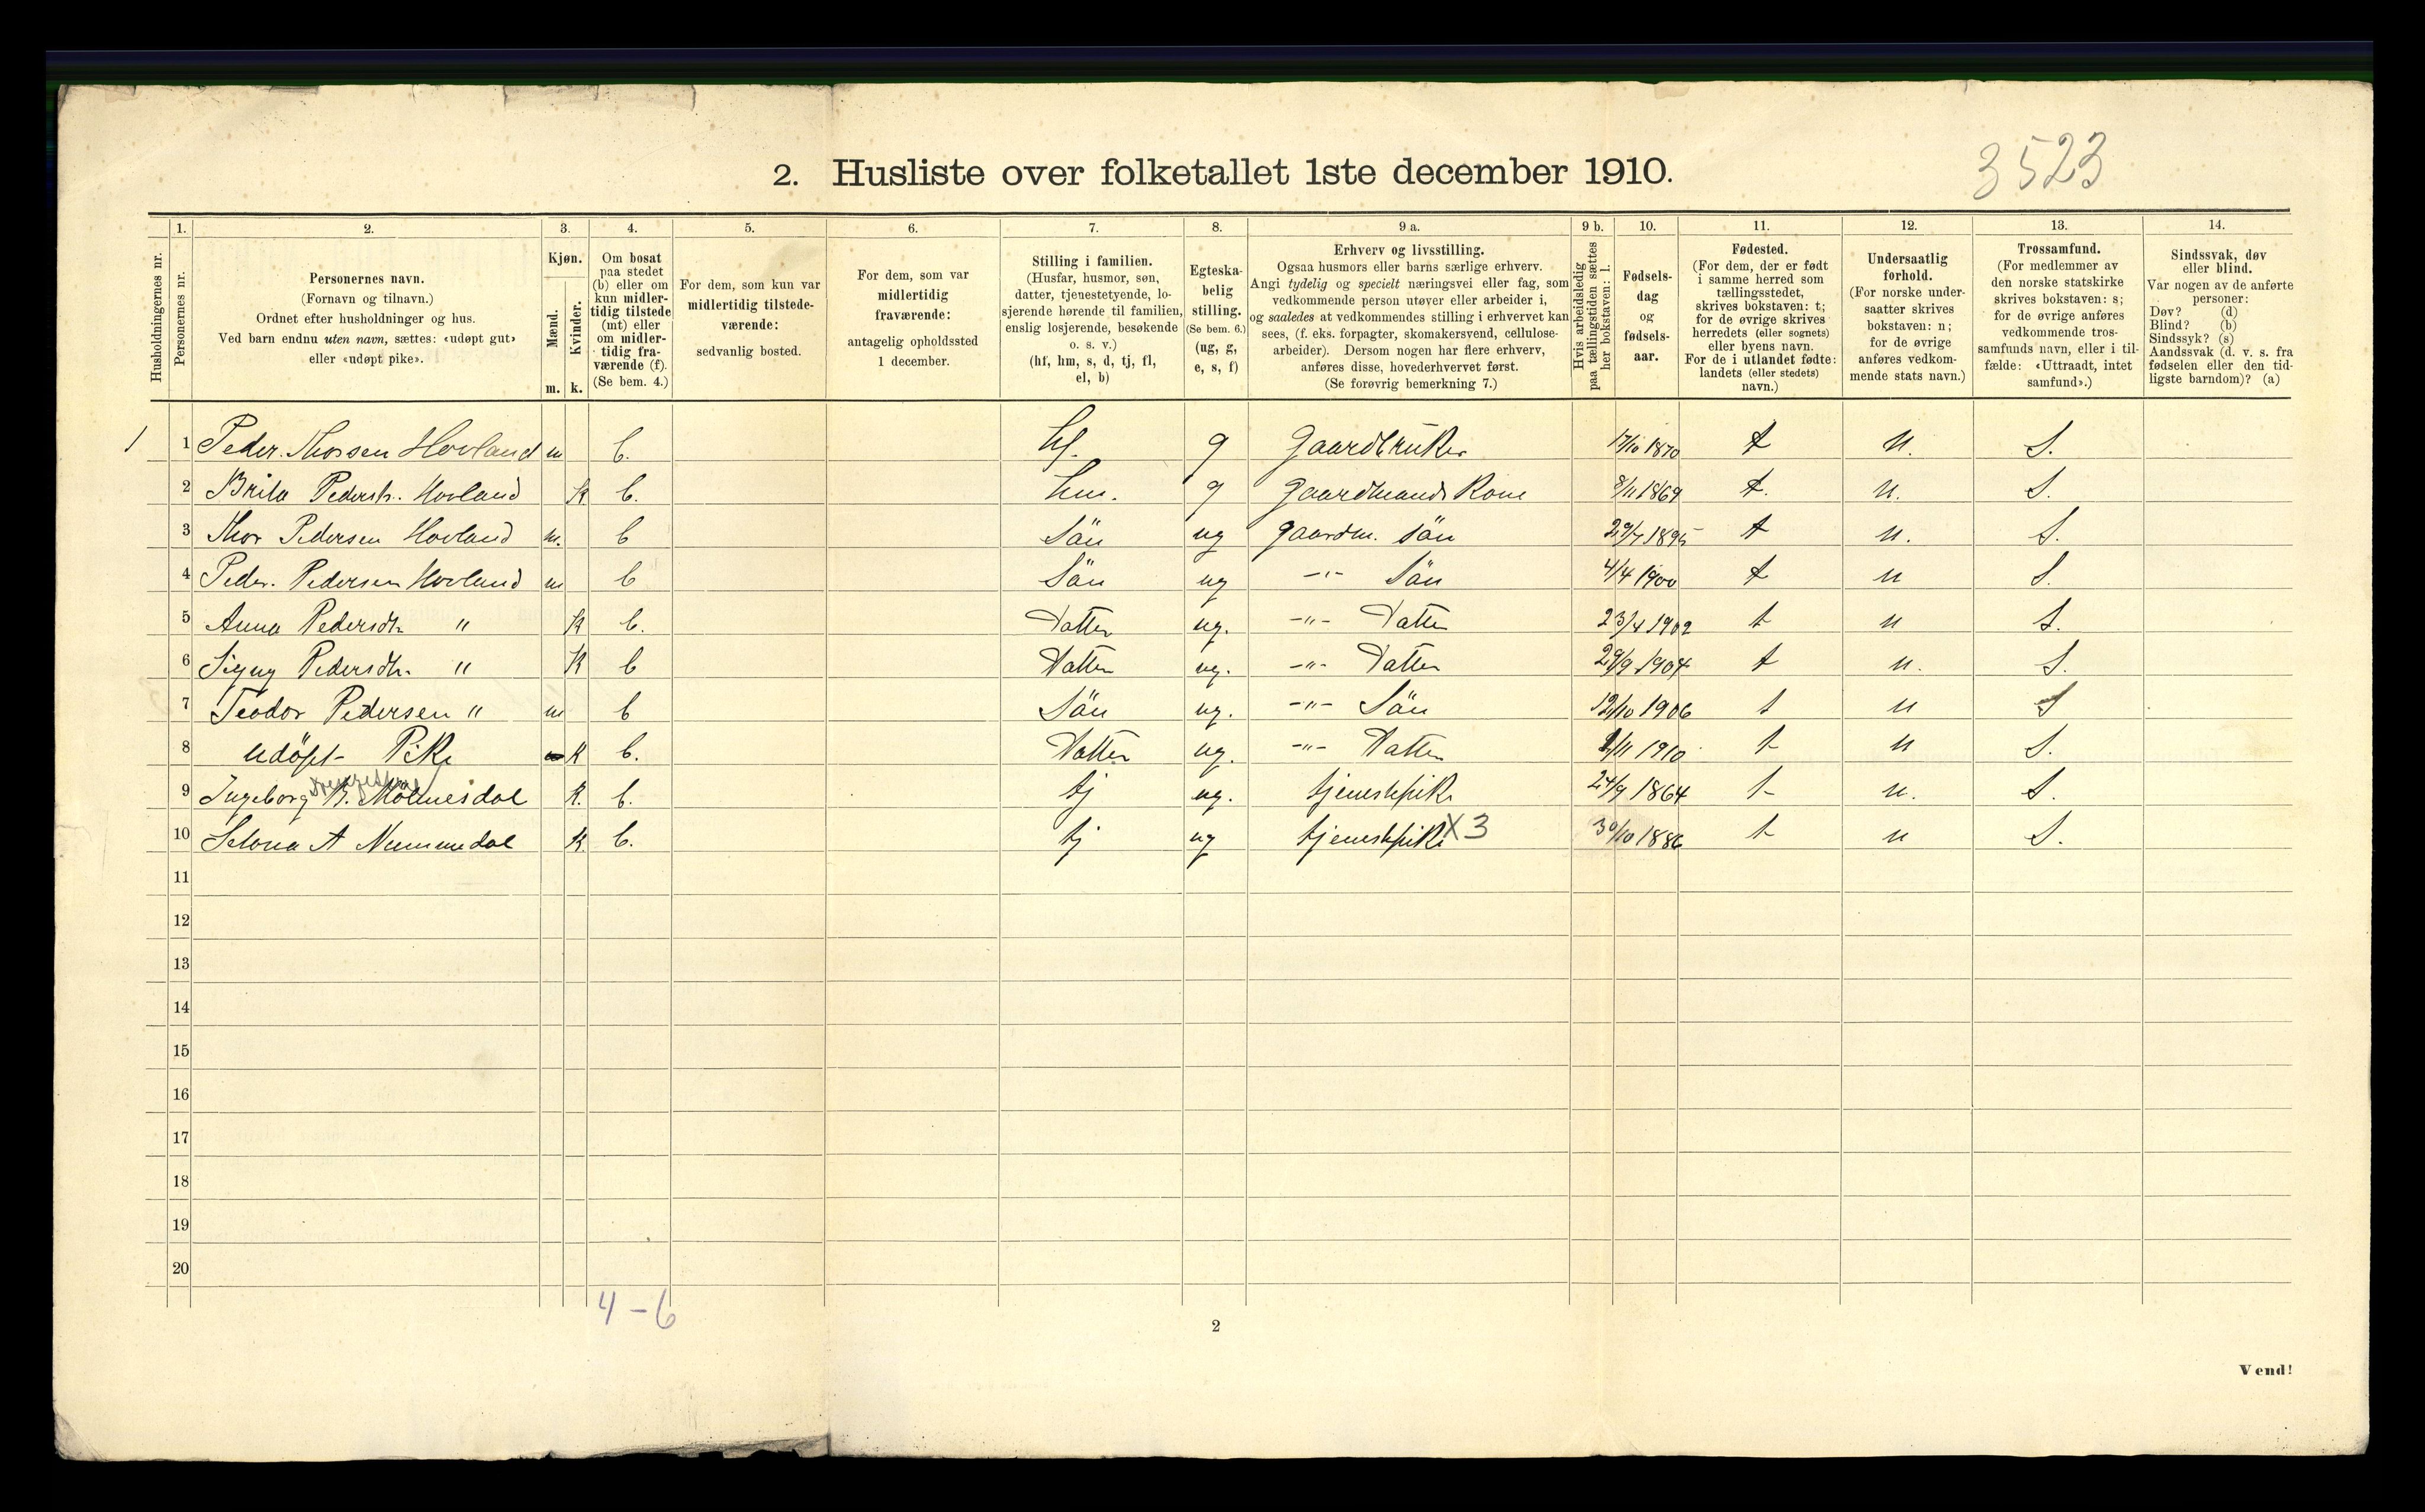 3523
2. Husliste over folketallet 1ste december 1910.
Husholdningernes nr.
1.
Personernes nr.
2.
Personernes navn.
(Fornavn og tilnavn.)
Ordnet efter husholdninger og hus.
Ved barn endnu uten navn, sættes: «udøpt gut»
eller «udøpt pike».
3.
Kjøn.
Mænd.
m.
Kvinder.
k.
4.
Om bosat
paa stedet
(b) eller om
kun midler-
tidig tilstede
(mt) eller
om midler-
tidig fra-
værende (f).
(Se bem. 4.)
5.
For dem, som kun var
midlertidig tilstede-
værende:
sedvanlig bosted.
6.
For dem, som var
midlertidig
fraværende:
antagelig opholdssted
1 december.
7.
Stilling i familien.
(Husfar, husmor, søn,
datter, tjenestetyende, lo-
sjerende hørende til familien,
enslig losjerende, besøkende
o. s. v.)
(hf, hm, s, d, tj, fl,
el, b)
8.
Egteska-
belig
stilling.
(Se bem. 6.)
(ug, g,
e, s, f)
9 a.
Erhverv og livsstilling.
Ogsaa husmors eller barns særlige erhverv.
Angi tydelig og specielt næringsvei eller fag, som
vedkommende person utøver eller arbeider i,
og saaledes at vedkommendes stilling i erhvervet kan
sees, (f. eks. forpagter, skomakersvend, cellulose-
arbeider). Dersom nogen har flere erhverv,
anføres disse, hovederhvervet først.
(Se forøvrig bemerkning 7.)
9 b.
Hvis arbeidsledig
paa tællingstiden sættes
her bokstaven: l.
10.
Fødsels-
dag
og
fødsels-
aar.
11.
Fødested.
(For dem, der er født
i samme herred som
tællingsstedet,
skrives bokstaven: t;
for de øvrige skrives
herredets (eller sognets)
eller byens navn.
For de i utlandet fødte:
landets (eller stedets)
navn.)
12.
Undersaatlig
forhold.
(For norske under-
saatter skrives
bokstaven: n;
for de øvrige
anføres vedkom-
mende stats navn.)
13.
Trossamfund.
(For medlemmer av
den norske statskirke
skrives bokstaven: s;
for de øvrige anføres
vedkommende tros-
samfunds navn, eller i til-
fælde: «Uttraadt, intet
samfund».)
14.
Sindssvak, døv
eller blind.
Var nogen av de anførte
personer:
Døv? (d)
Blind? (b)
Sindssyk? (s)
Aandssvak (d. v. s. fra
fødselen eller den tid-
ligste barndom)? (a)
1 1 Peder. Thorsen Hovland m b. hf. g Gaardbruker 17/10 1870 t n. S.
2 Brita Pedersdt. Hovland K b. hm. g Gaardmands Kone 8/11 1869 t. n. S.
3 Thor Pedersen Hovland m. b Sön ug gaardm. Sön 29/7 1895 t n. S.
4 Peder. Pedersen Hovland m b Sön ug -"- Sön 4/4 1900 t n S.
5 Anna Pedersdtr " K b. Datter ug. -"- Datter 23/4 1902 t n S.
6 Signy Pedersdtr. " K b Datter ug. -"- Datter 29/9 1904 t n. S.
7 Teodor Pedersen " m b Sön ug. -"- Sön 12/10 1906 t n S
8 udöpt Pike K b. Datter ug. -"- Datter 1/11 1910 t n S.
9 Ingeborg B. Mölmesdal K. b. tj ug. tjenestepike 24/9 1864 t n. S.
10 Selona A Nummedal K b. tj ug tjenestepike X3 30/10 1886 t n S.
11
12
13
14
15
16
17
18
19
20
4-6
2
Vend!